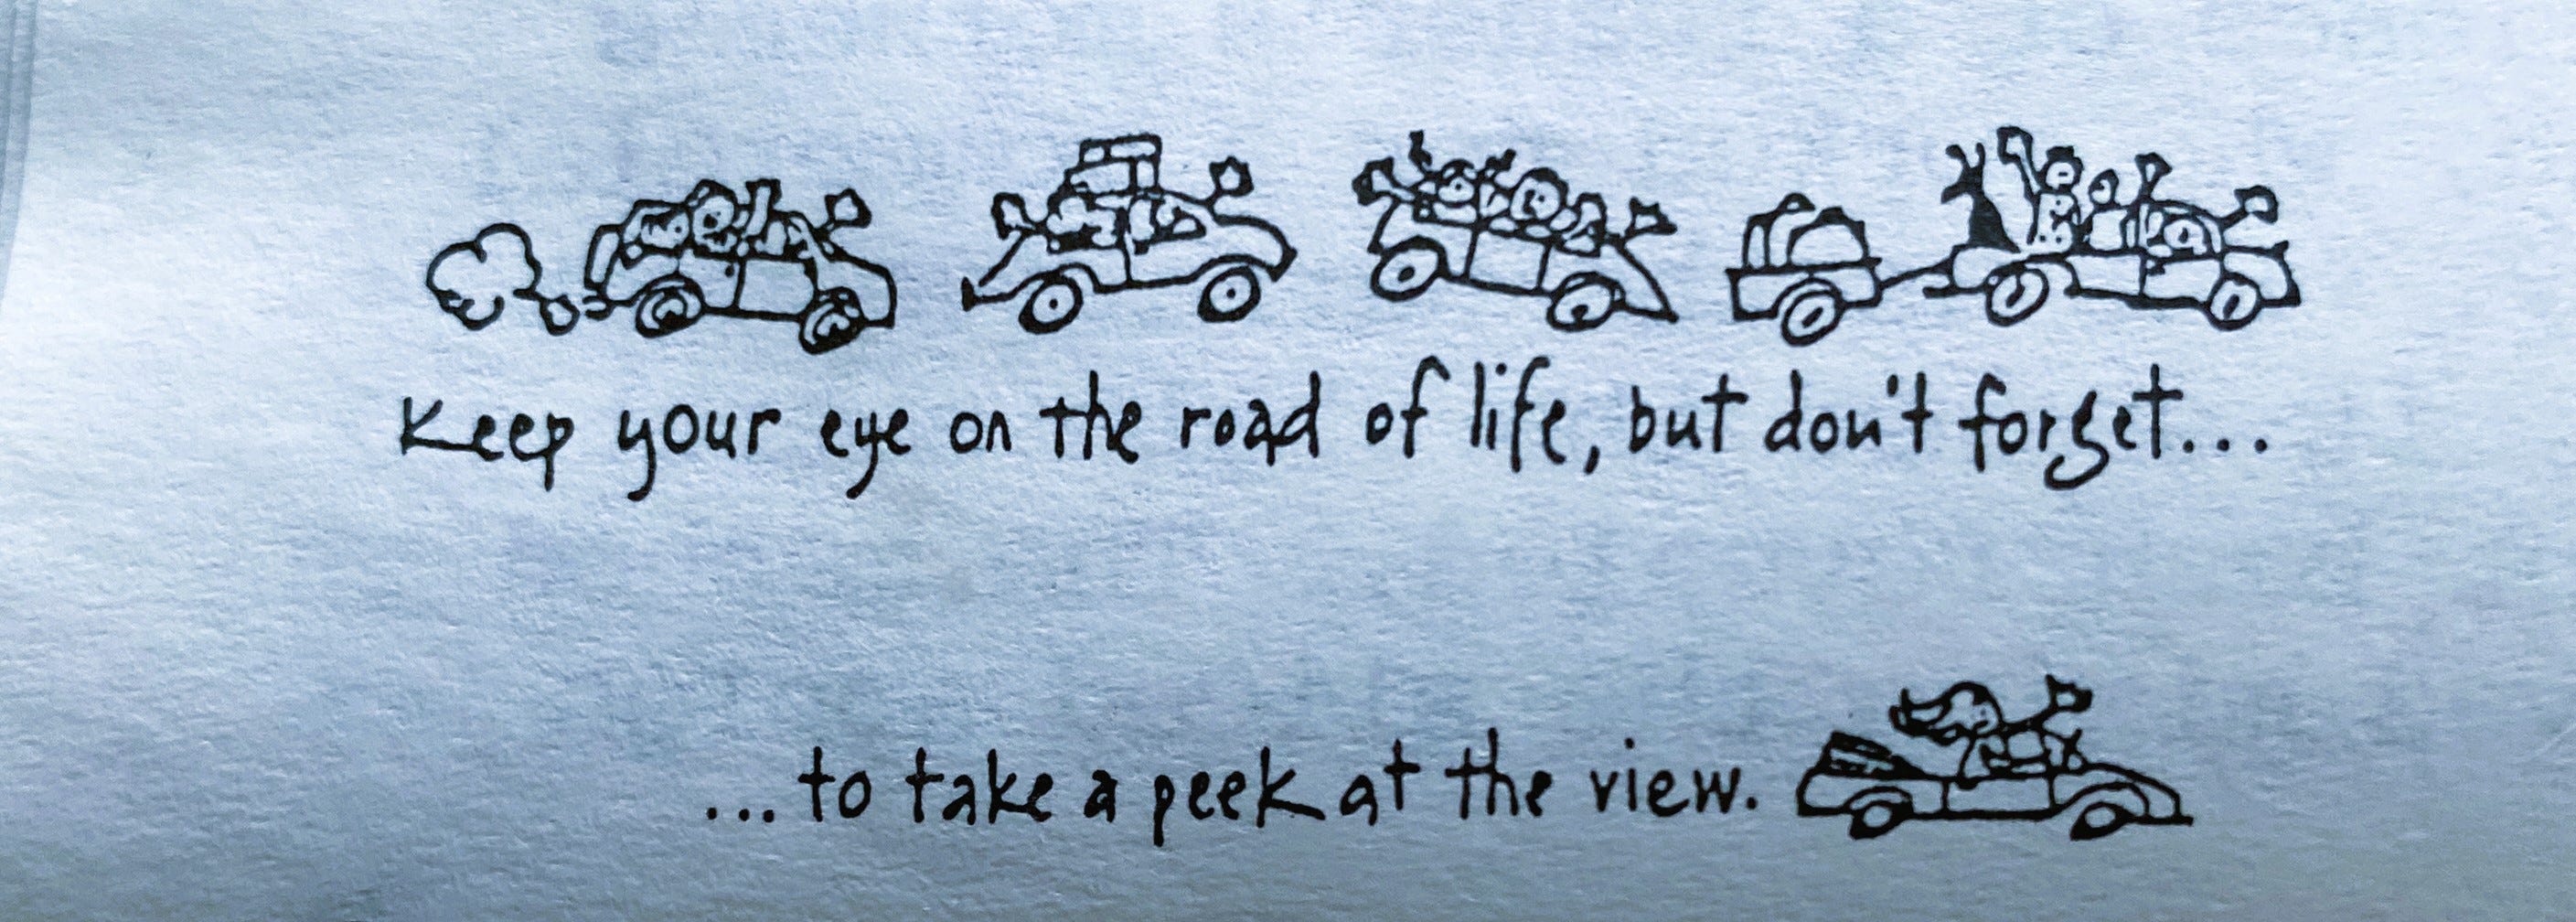 Keep your eye on the road of life, but don't forget...
...to take a peek at the view.